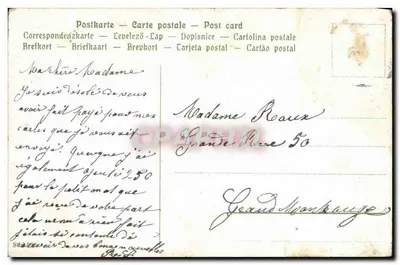 Postkarte – Carte postale – Post card
Correspondenzkarte – Levelező-Lap – Dopisnice – Cartolina postale
Brefkort – Briefkaart – Brevkort – Tarjeta postal – Cartão postal
Ma chère Madame
Je suis désolé de vous
avoir fait payé pour mes
cartes que je vous ait
envoyé. Quoique j'ai
également ajouté 2.50
pour le petit mot que
j'ai reçu de votre part
cela ne m'a rien fait
j'étais si contente de
recevoir de vos bonnes nouvelles
Madame Roux
Grande Rue 50
Grand Montrouge